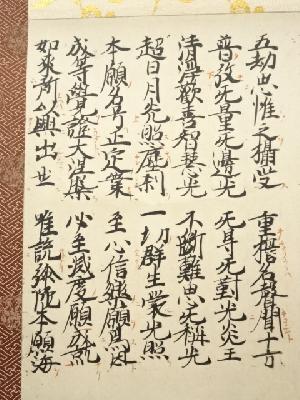 五劫思惟之攝受 重誓名聲聞十方
普放无量无邊光 无碍无對光炎王
清淨歡喜智慧光 不斷難思无稱光
超日月光照塵刹 一切群生蒙光照
本願名号正定業 至心信樂願爲因
成等覺證大涅槃 必至滅度願成就
如來所以興出世 唯説弥陀本願海